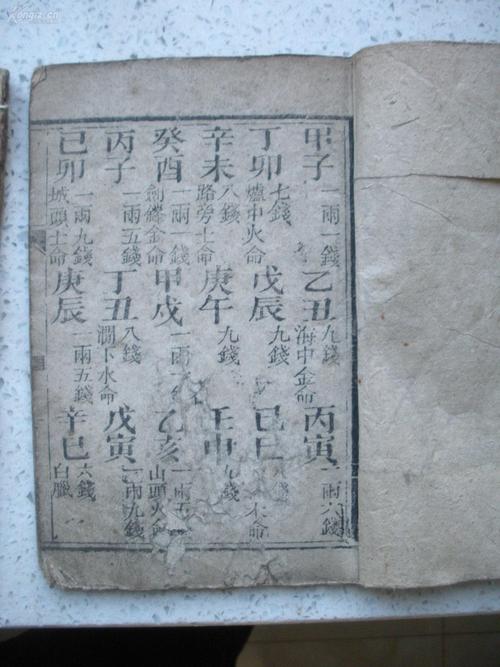 甲子 一兩一錢 乙丑 九錢 海中金命 丙寅 一兩六錢
丁卯 七錢 爐中火命 戊辰 九錢 己巳 錢 木命
辛未 八錢 路旁土命 庚午 九錢 壬申 九錢
癸酉 一兩一錢 劍鋒金命 甲戌 一兩 錢 乙亥 一兩五 山頭火命
丙子 一兩五錢 丁丑 八錢 澗下水命 戊寅 一兩九錢
已卯 一兩九錢 城頭土命 庚辰 一兩五錢 辛巳 六錢 白臘